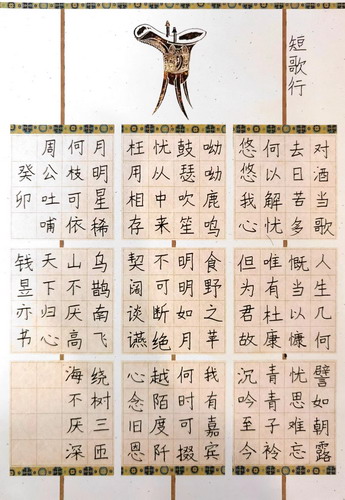 短歌行
对酒当歌人生几何譬如朝露
去日苦多慨当以慷忧思难忘
何以解忧唯有杜康青青子衿
悠悠我心但为君故沉吟至今
呦呦鹿鸣食野之苹我有嘉宾
鼓瑟吹笙明明如月何时可掇
忧从中来不可断绝越陌度阡
枉用相存契阔谈讌心念旧恩
月明星稀乌鹊南飞绕树三匝
何枝可依山不厌高海不厌深
周公吐哺天下归心
癸卯钱昱亦书